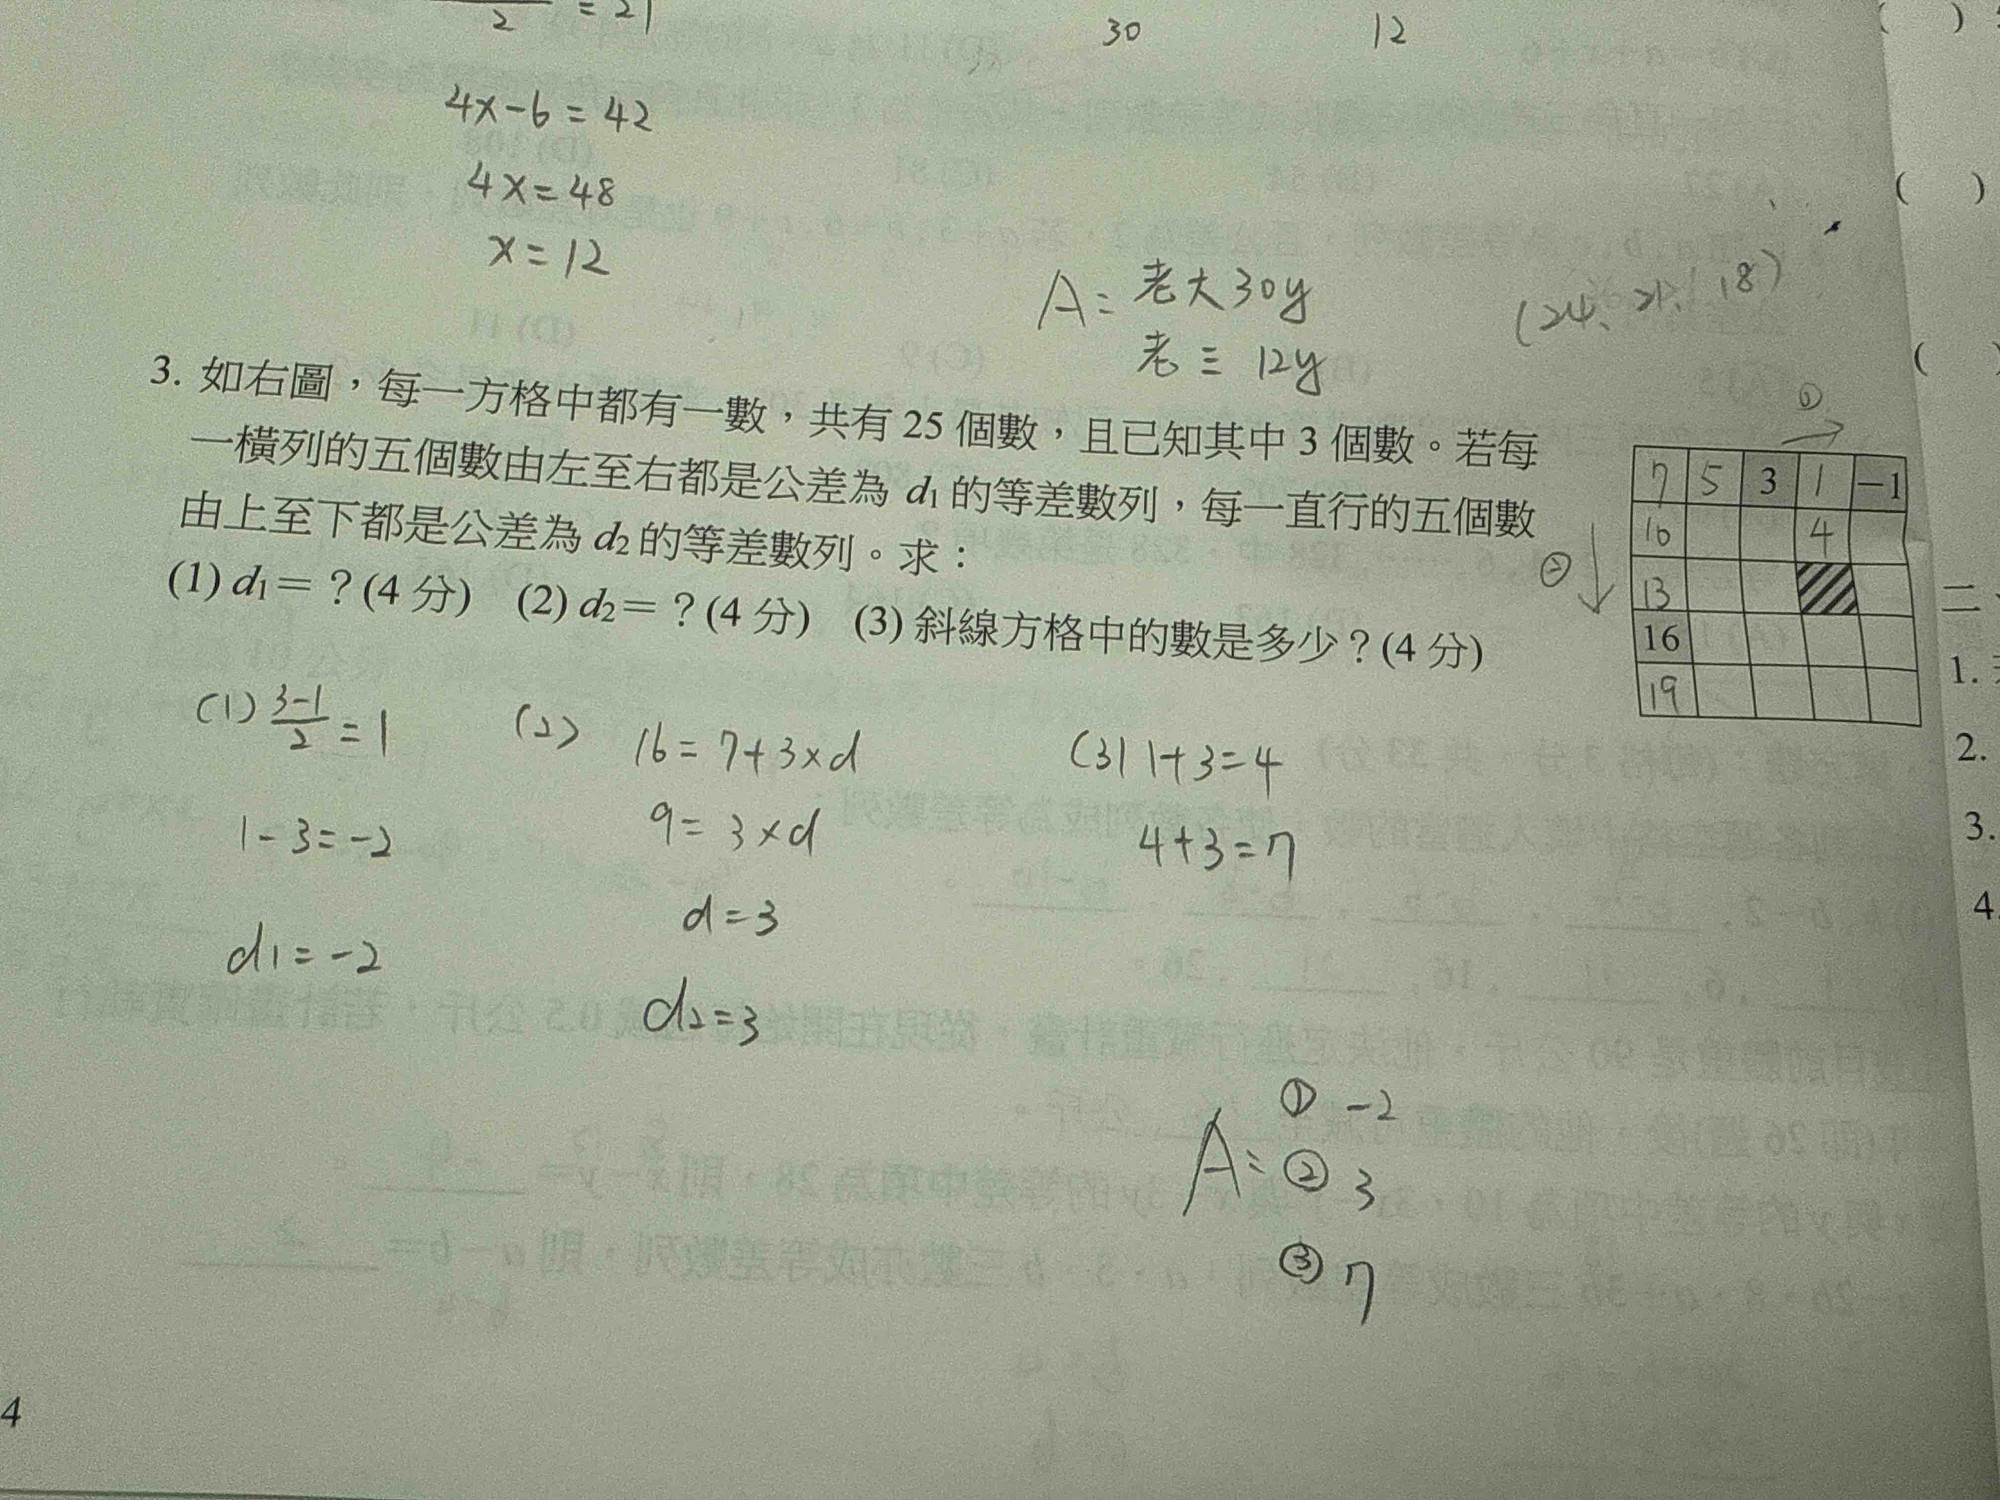 2 = 21
30 12
4x-6=42
4x=48
x=12
A= 老大30y
老三 12y
(24、21、18)
3. 如右圖，每一方格中都有一數，共有 25 個數，且已知其中 3 個數。若每
一橫列的五個數由左至右都是公差為 d₁ 的等差數列，每一直行的五個數
由上至下都是公差為 d₂ 的等差數列。求：
(1) d₁＝？(4 分) (2) d₂＝？(4 分) (3) 斜線方格中的數是多少？(4 分)
①
7 5 3 1 -1
10 4
②
13
16
19
(1) 3-1/2 = 1
1-3=-2
d1=-2
(2) 16=7+3×d
9=3×d
d=3
d2=3
(3) 1+3=4
4+3=7
A= ① -2
② 3
③ 7
4
( )
( )
(
二、
1.
2.
3.
4.